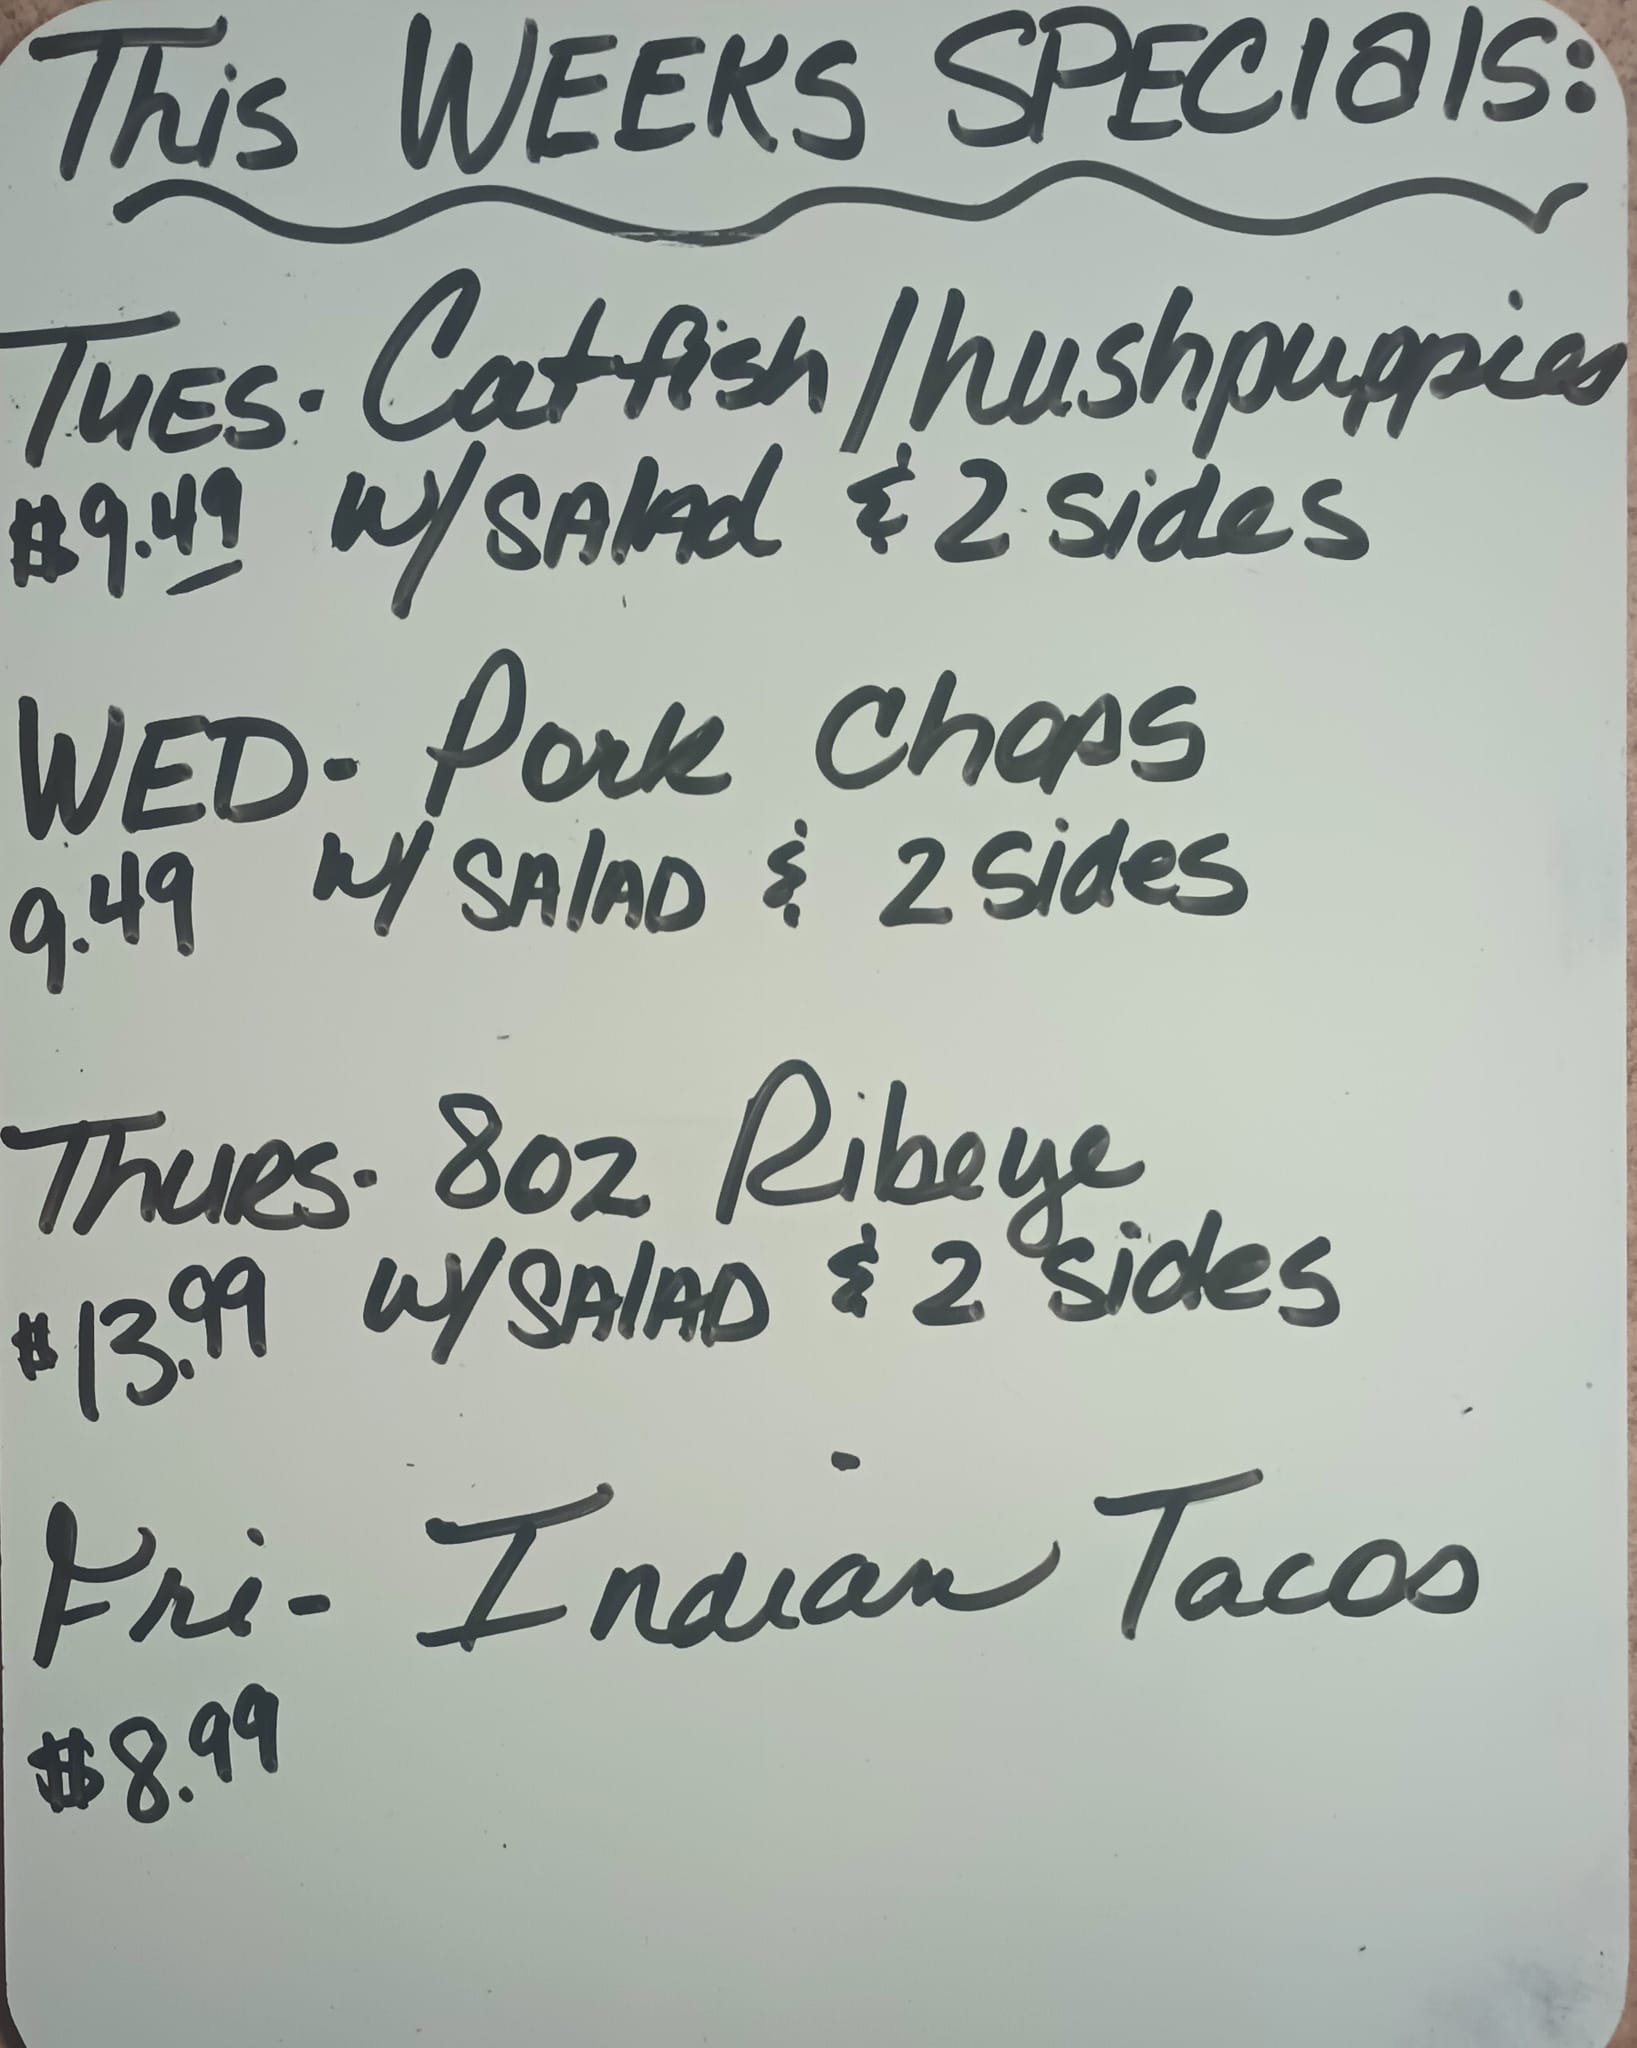 This WEEKS SPECIalS:
TUES- Catfish/hushpuppies
$9.49 w/SAlAd & 2 sides
WED- Pork Chops
9.49 w/ SAlAD & 2 sides
ThuRs- 8oz Ribeye
$13.99 w/SAlAD & 2 sides
Fri- Indian Tacos
$8.99